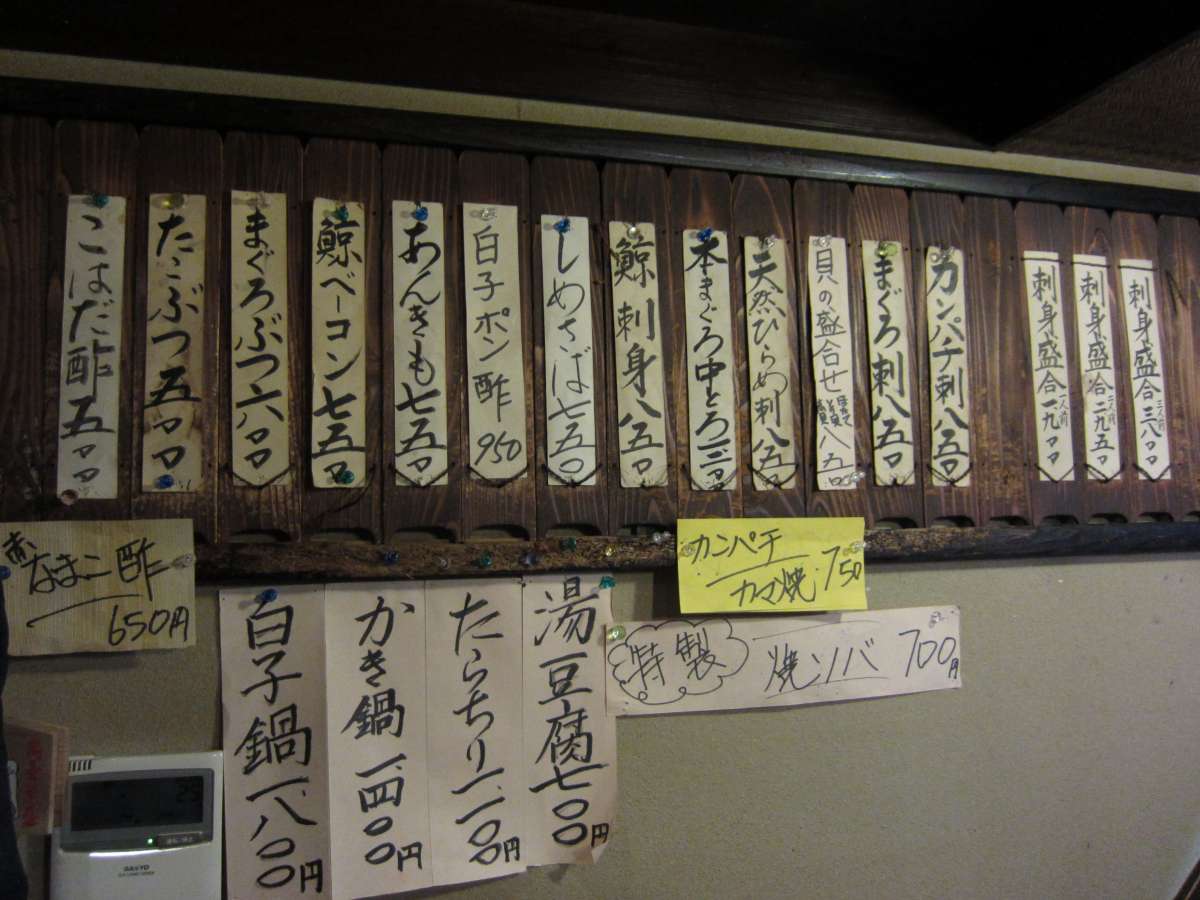 刺身盛合三人前三八〇〇
刺身盛合二人前二九五〇
刺身盛合一人前一九〇〇
カンパチ刺八五〇
まぐろ刺八五〇
貝の盛合せ
天然ひらめ刺八五〇
本まぐろ中とろ一二〇〇
鯨刺身八五〇
しめさば七五〇
白子ポン酢950
あんきも七五〇
鯨ベーコン七五〇
まぐろぶつ六〇〇
たこぶつ五〇〇
こはだ酢五〇〇
赤なまこ酢
650円
カンパチ
カマ焼 750
特製 焼ソバ 700円
湯豆腐七〇〇円
たらちり一、一〇〇円
かき鍋一、四〇〇円
白子鍋一、八〇〇円
25
SANYO